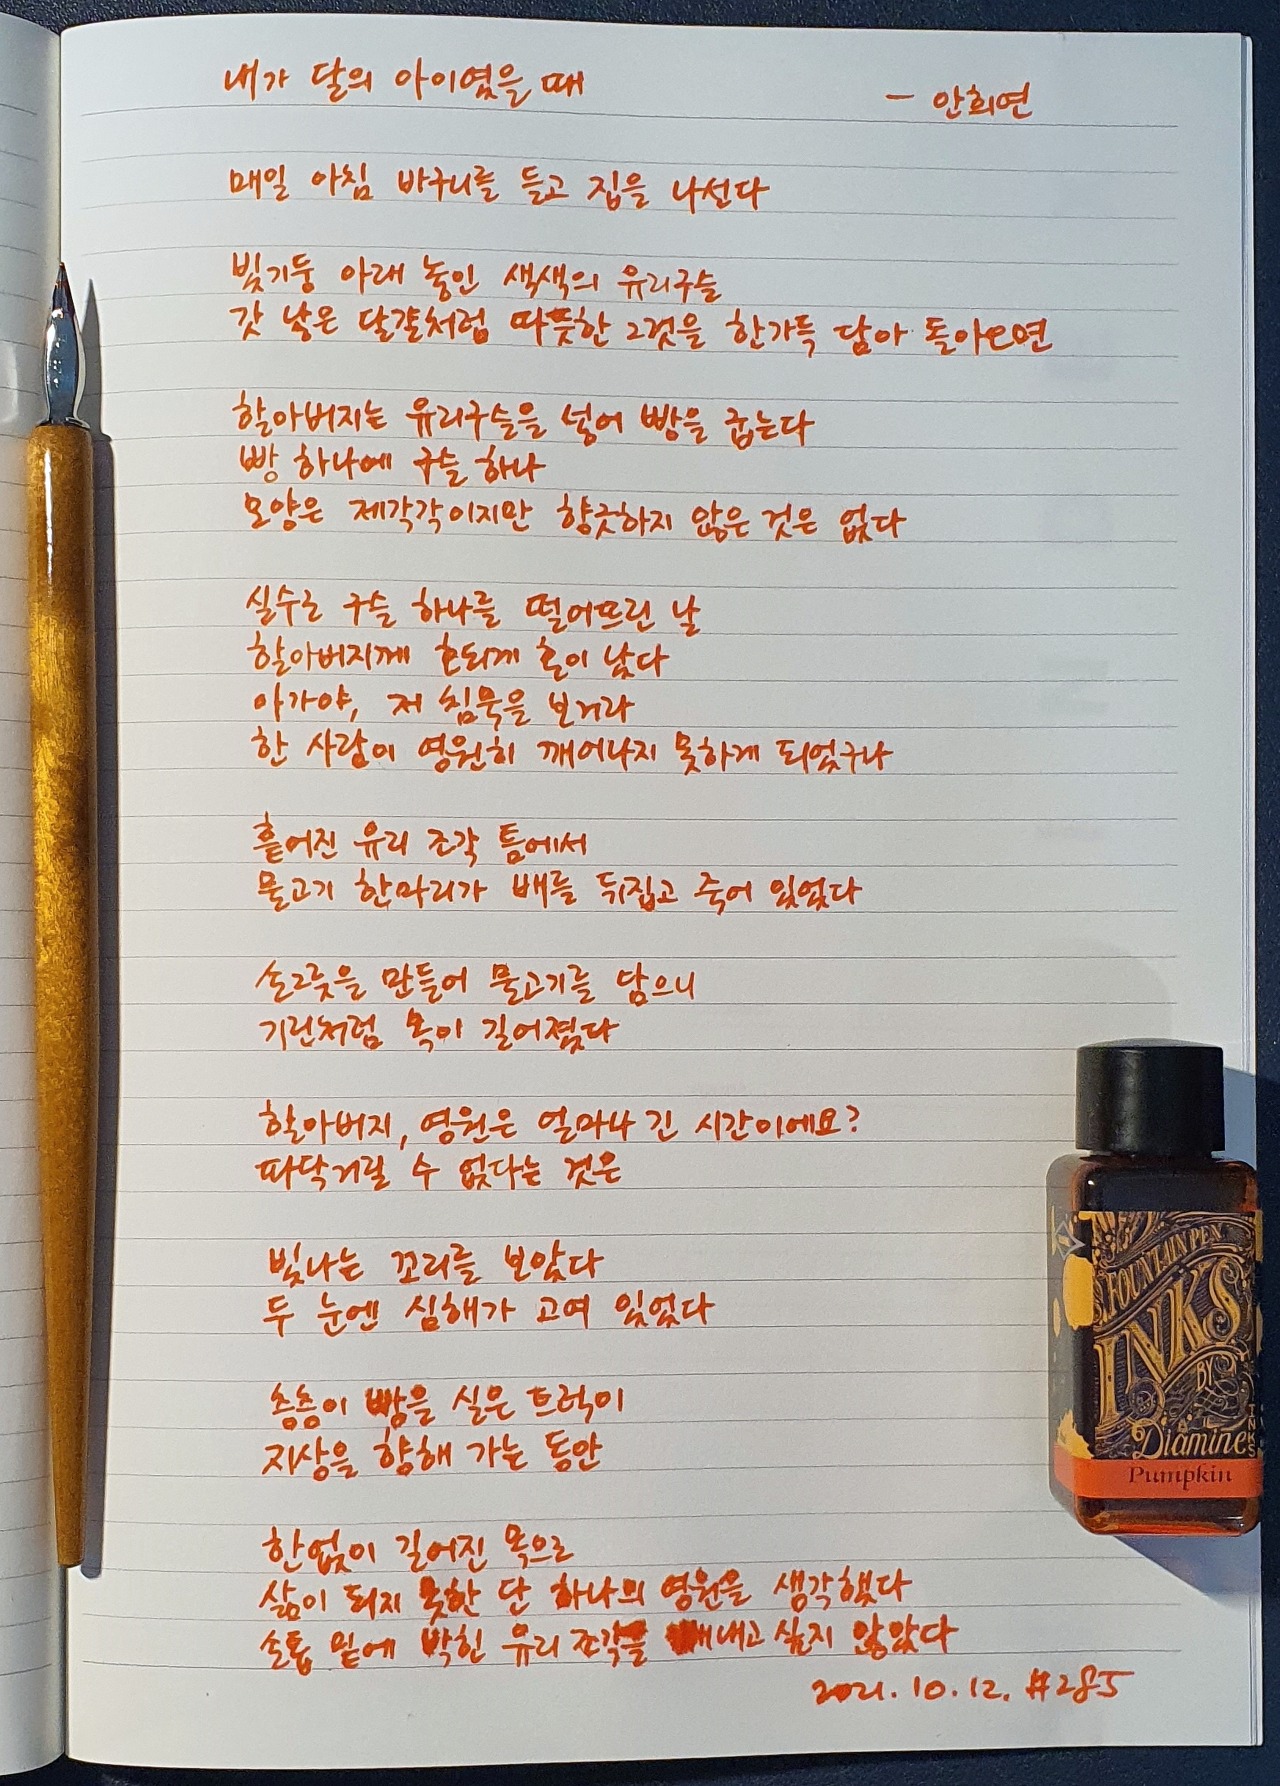 내가 달의 아이였을 때
- 안희연
매일 아침 바구니를 들고 집을 나선다
빛기둥 아래 놓인 색색의 유리구슬
갓 낳은 달걀처럼 따뜻한 그것을 한가득 담아 돌아오면
할아버지는 유리구슬을 넣어 빵을 굽는다
빵 하나에 구슬 하나
모양은 제각각이지만 향긋하지 않은 것은 없다
실수로 구슬 하나를 떨어뜨린 날
할아버지께 호되게 혼이 났다
아가야, 저 침묵을 보거라
한 사람이 영원히 깨어나지 못하게 되었구나
흩어진 유리 조각 틈에서
물고기 한마리가 배를 뒤집고 죽어 있었다
손그릇을 만들어 물고기를 담으니
기린처럼 목이 길어졌다
할아버지, 영원은 얼마나 긴 시간이에요?
파닥거릴 수 없다는 것은
빛나는 꼬리를 보았다
두 눈엔 심해가 고여 있었다
층층이 빵을 실은 트럭이
지상을 향해 가는 동안
한없이 길어진 목으로
삶이 되지 못한 단 하나의 영원을 생각했다
손톱 밑에 박힌 유리 조각을 빼내고 싶지 않았다
2021. 10. 12. #285
FOUNTAIN PEN
INKS
BY
Diamine
INKS
Pumpkin